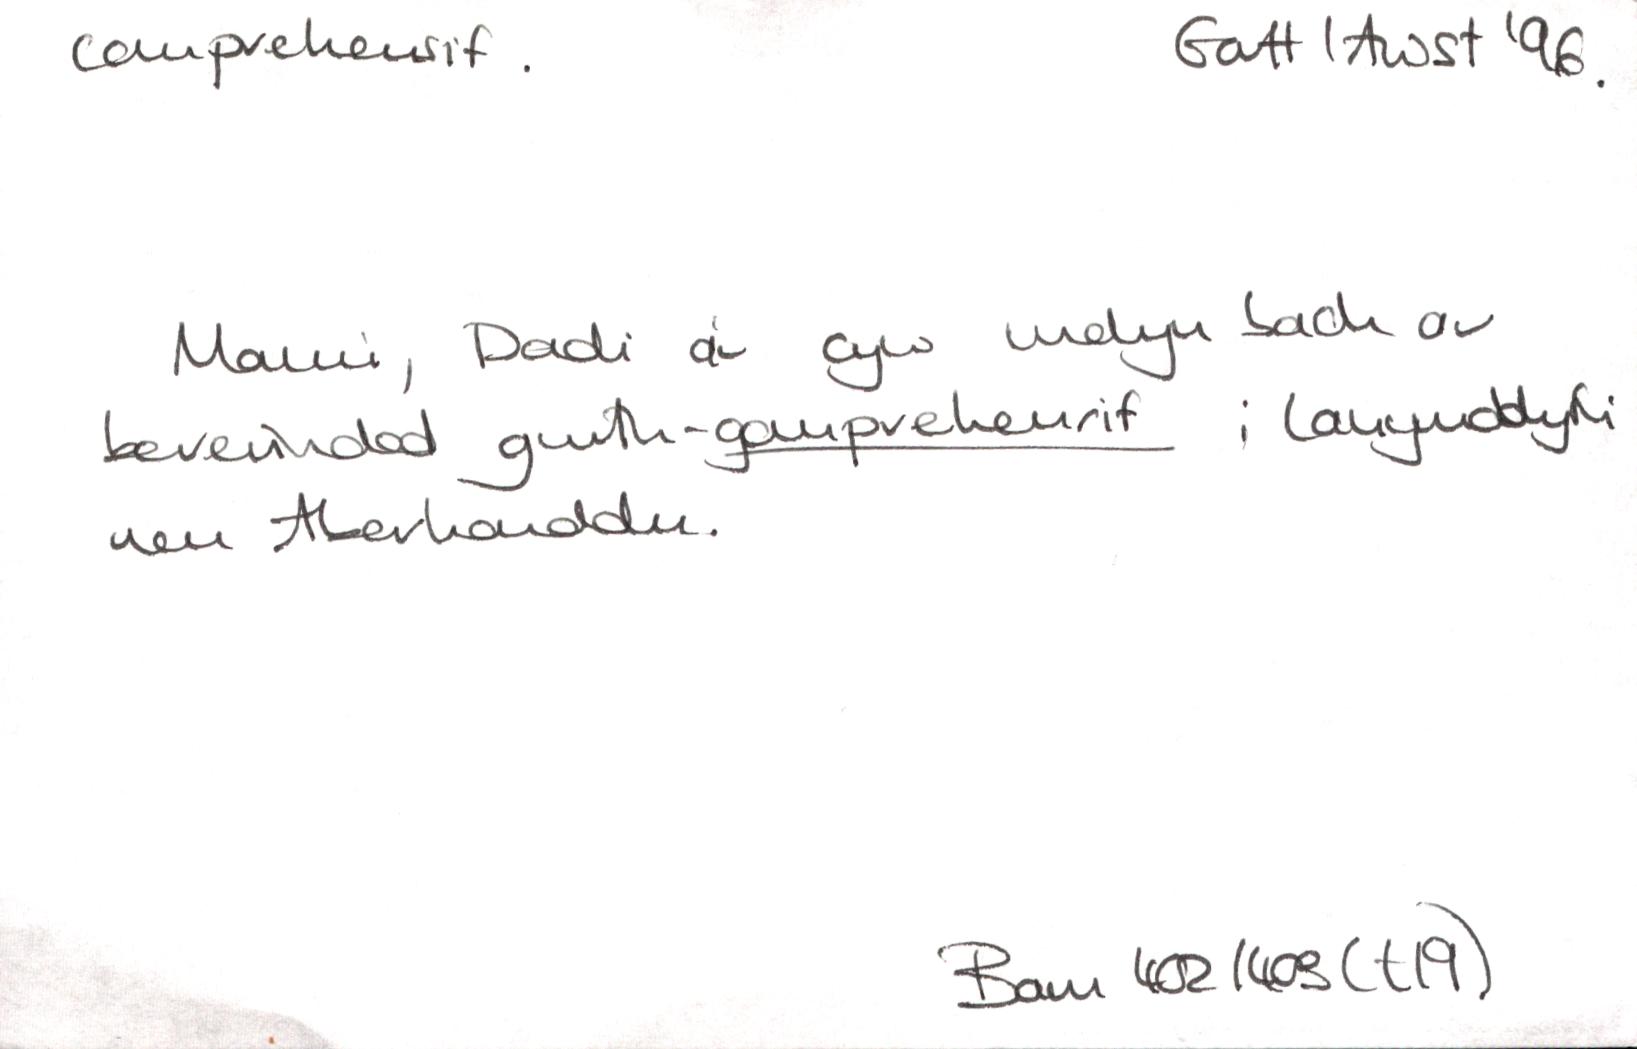 comprehensif. Gorff/Awst '96.
Mami, Dadi a'r cyw melyn bach ar
bererindod gwrth-gomprehensif i Langynddyfri
neu Aberhonddu.
Barn 402/403 (t19)